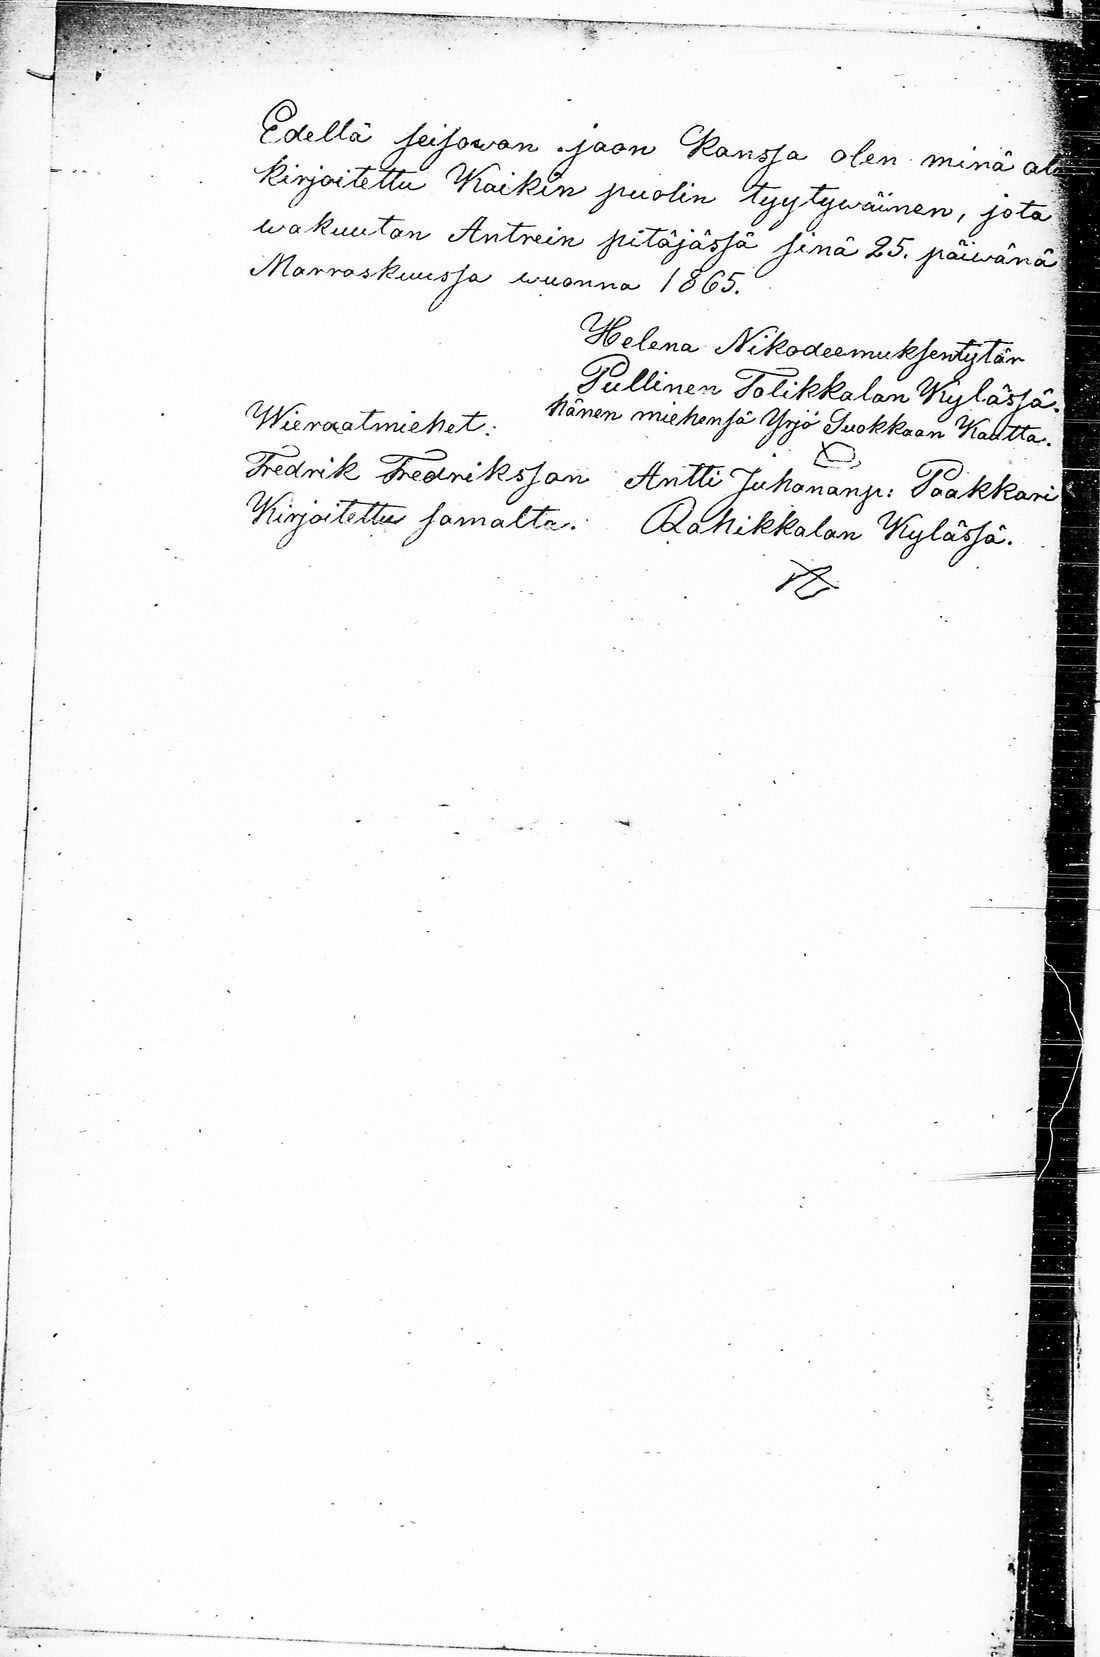 Edellä seisowan jaon kanssa olen minä ala
kirjoitettu Kaikin puolin tyytywäinen, jota
wakuutan Antrein pitäjässä sinä 25. päiwänä
Marraskuussa wuonna 1865.
Helena Nikodeemuksentytär
Pullinen Tolikkalan Kylässä.
hänen miehensä Yrjö Suokkaan Kautta.
Wieraatmiehet:
Fredrik Fredriksson Antti Juhananp: Paakkari
Kirjoitettu samalta. Rahikkalan Kylässä.